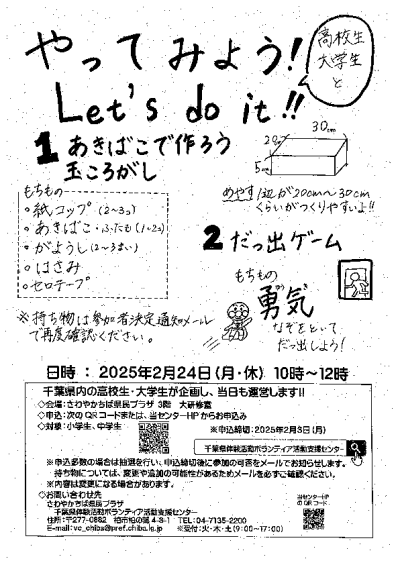 やってみよう!
高校生
大学生
と
Let's do it!!
1 あきばこで作ろう
玉ころがし
30cm
20cm
5cm
めやす 1辺が20cm〜30cm
くらいがつくりやすいよ!!
もちもの
○紙コップ(2〜3コ)
○あきばこ・ふたも(1〜2コ)
○がようし(2〜3まい)
○はさみ
○セロテープ
2 だっ出ゲーム
もちもの
勇気
なぞをといて
だっ出しよう!
※持ち物は参加者決定通知メール
で再度確認ください。
日時 : 2025年2月24日(月・休) 10時〜12時
千葉県内の高校生・大学生が企画し、当日も運営します!!
◇会場:さわやかちば県民プラザ 3階 大研修室
◇申込:次のQRコードまたは、当センターHPからお申込み
◇対象:小学生、中学生
※申込締切:2025年2月3日(月)
千葉県体験活動ボランティア活動支援センター
※申込多数の場合は抽選を行い、申込締切後に参加の可否をメールでお知らせします。
持ち物については、変更や追加の可能性があるためメールを必ずご確認ください。
※内容は変更になる場合があります。
◇お問い合わせ先
さわやかちば県民プラザ
千葉県体験活動ボランティア活動支援センター
住所:〒277-0882 柏市柏の葉4-3-1 TEL:04-7135-2200
E-mail:vc_chiba@pref.chiba.lg.jp ※受付:火・木・土(9:00〜17:00)
当センターHP
のQRコード